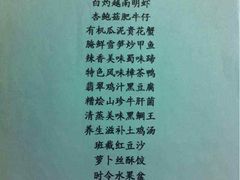 白灼越南明虾
杏鲍菇肥牛仔
有机瓜泥賮花蟹
腌鲜雪笋炒甲鱼
辣香美味蜀味蹄
特色风味樟茶鸭
翡翠鸡汁黑豆腐
糟烩山珍牛肝菌
清蒸美味黑鲷王
养生滋补土鸡汤
班戟红豆沙
萝卜丝酥饺
时令水果盆